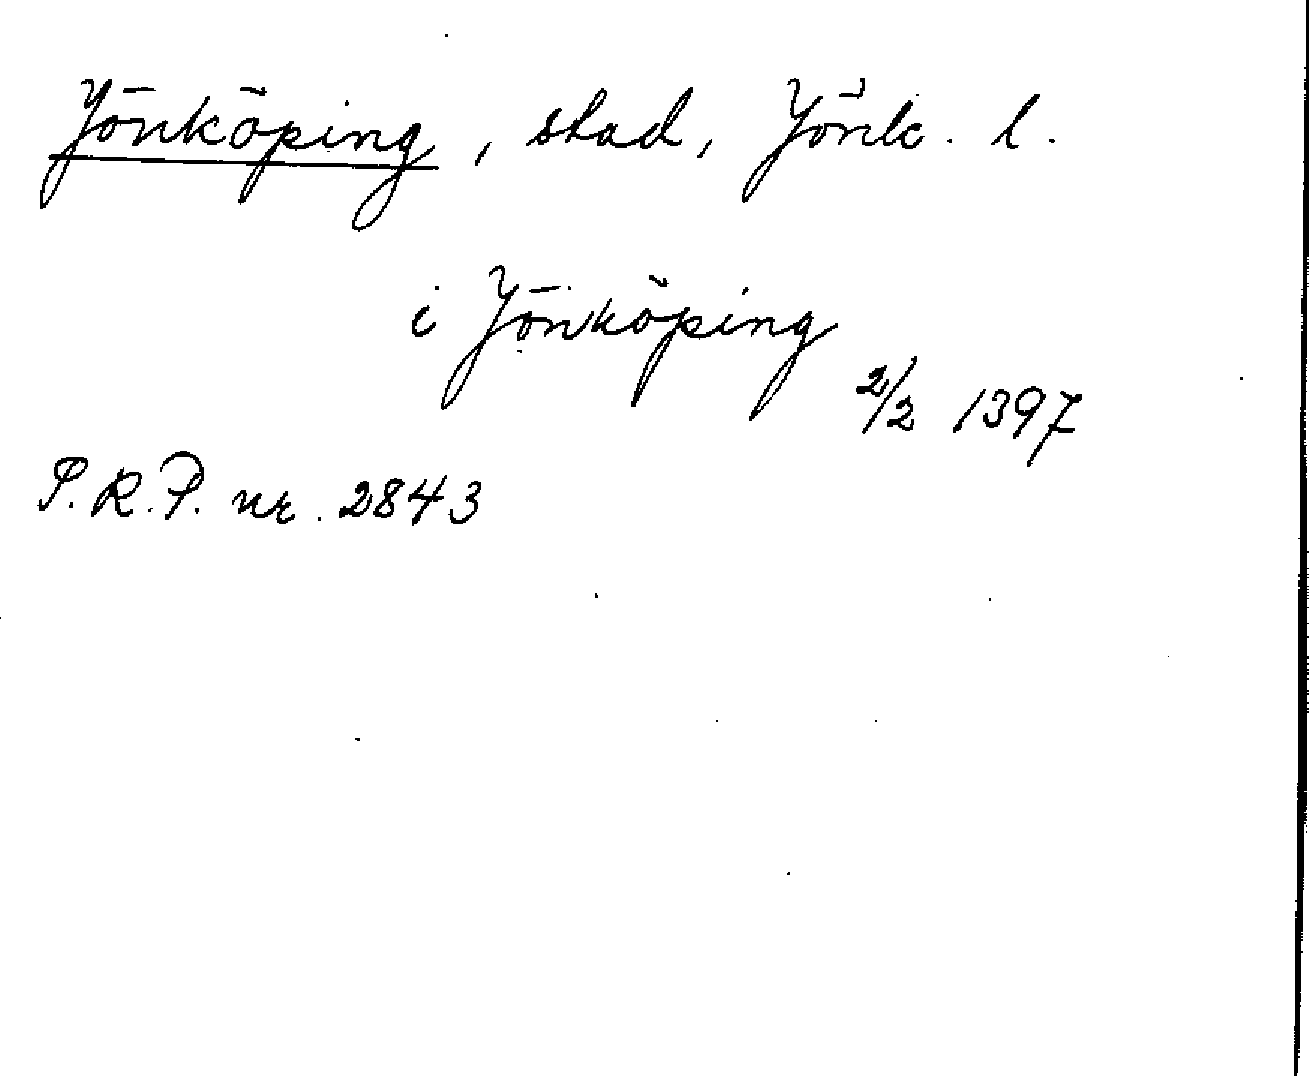 Jönköping, stad, Jönk. l.
i Jönköping
2/2 1397
P.R.P. nr. 2843